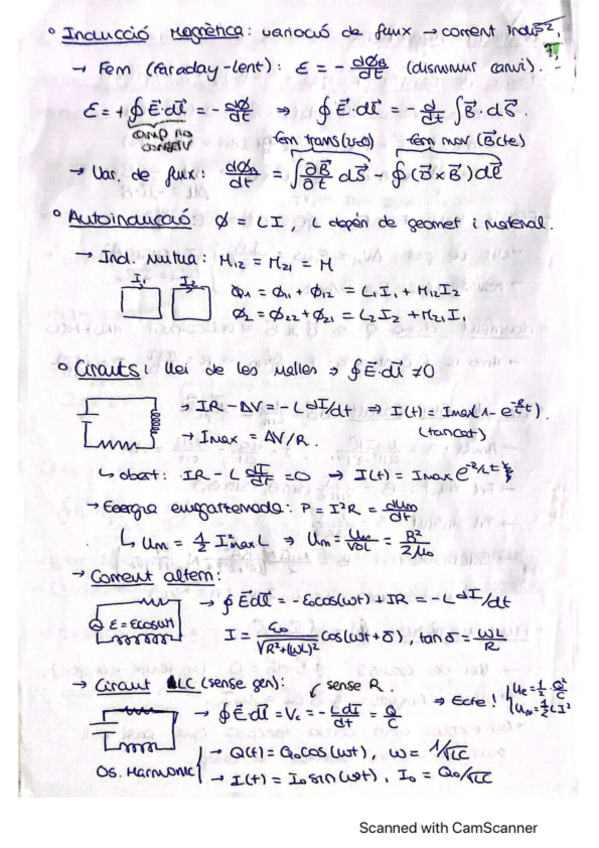 ° Inducció Magnètica: variació de flux → corrent induït.
→ Fem (Faraday-Lent): ℰ = - dΦB/dt (disminuir canvi).
ℰ = + ∮ E⃗·dl⃗ = - dΦ/dt ⇒ ∮ E⃗·dl⃗ = - d/dt ∫ B⃗·dS⃗.
camp no conserv
fem trans(v=0) fem mov (B⃗ cte)
→ Var. de flux: dΦB/dt = ∫ ∂B⃗/∂t dS⃗ - ∮ (B⃗ x B⃗) dl⃗
° Autoinducció φ = LI, L depèn de geomet i material.
→ Ind. Mutua: M12 = M21 = M
I1 I2
φ1 = φ11 + φ12 = L1I1 + M12I2
φ2 = φ22 + φ21 = L2I2 + M21I1
° Circuits: llei de les malles → ∮ E⃗·dl⃗ ≠ 0
→ IR - ΔV = -L dI/dt ⇒ I(t) = Imax(1 - e^-R/L t).
(tancat)
→ Imax = ΔV/R.
↳ obert: IR - L dI/dt = 0 → I(t) = Imax e^-R/L t
→ Energia emmagatzemada: P = I²R = dUm/dt
↳ Um = 1/2 I²max L ⇒ um = Um/Vol = B²/2μ0
→ Corrent altern:
ℰ = ℰcosωt
→ ∮ E⃗dl⃗ = -ℰcos(ωt) + IR = -L dI/dt
I = ℰ0/√R²+(ωL)² cos(ωt + δ), tan δ = ωL/R
→ Circuit LC (sense gen): sense R.
→ ∮ E⃗dl⃗ = Vc = - LdI/dt = Q/C ⇒ E cte! Ue = 1/2 Q²/C
Um = 1/2 LI²
→ Q(t) = Q0 cos(ωt), ω = 1/√LC
Os. Harmonic → I(t) = I0 sin(ωt), I0 = Q0/√LC
Scanned with CamScanner